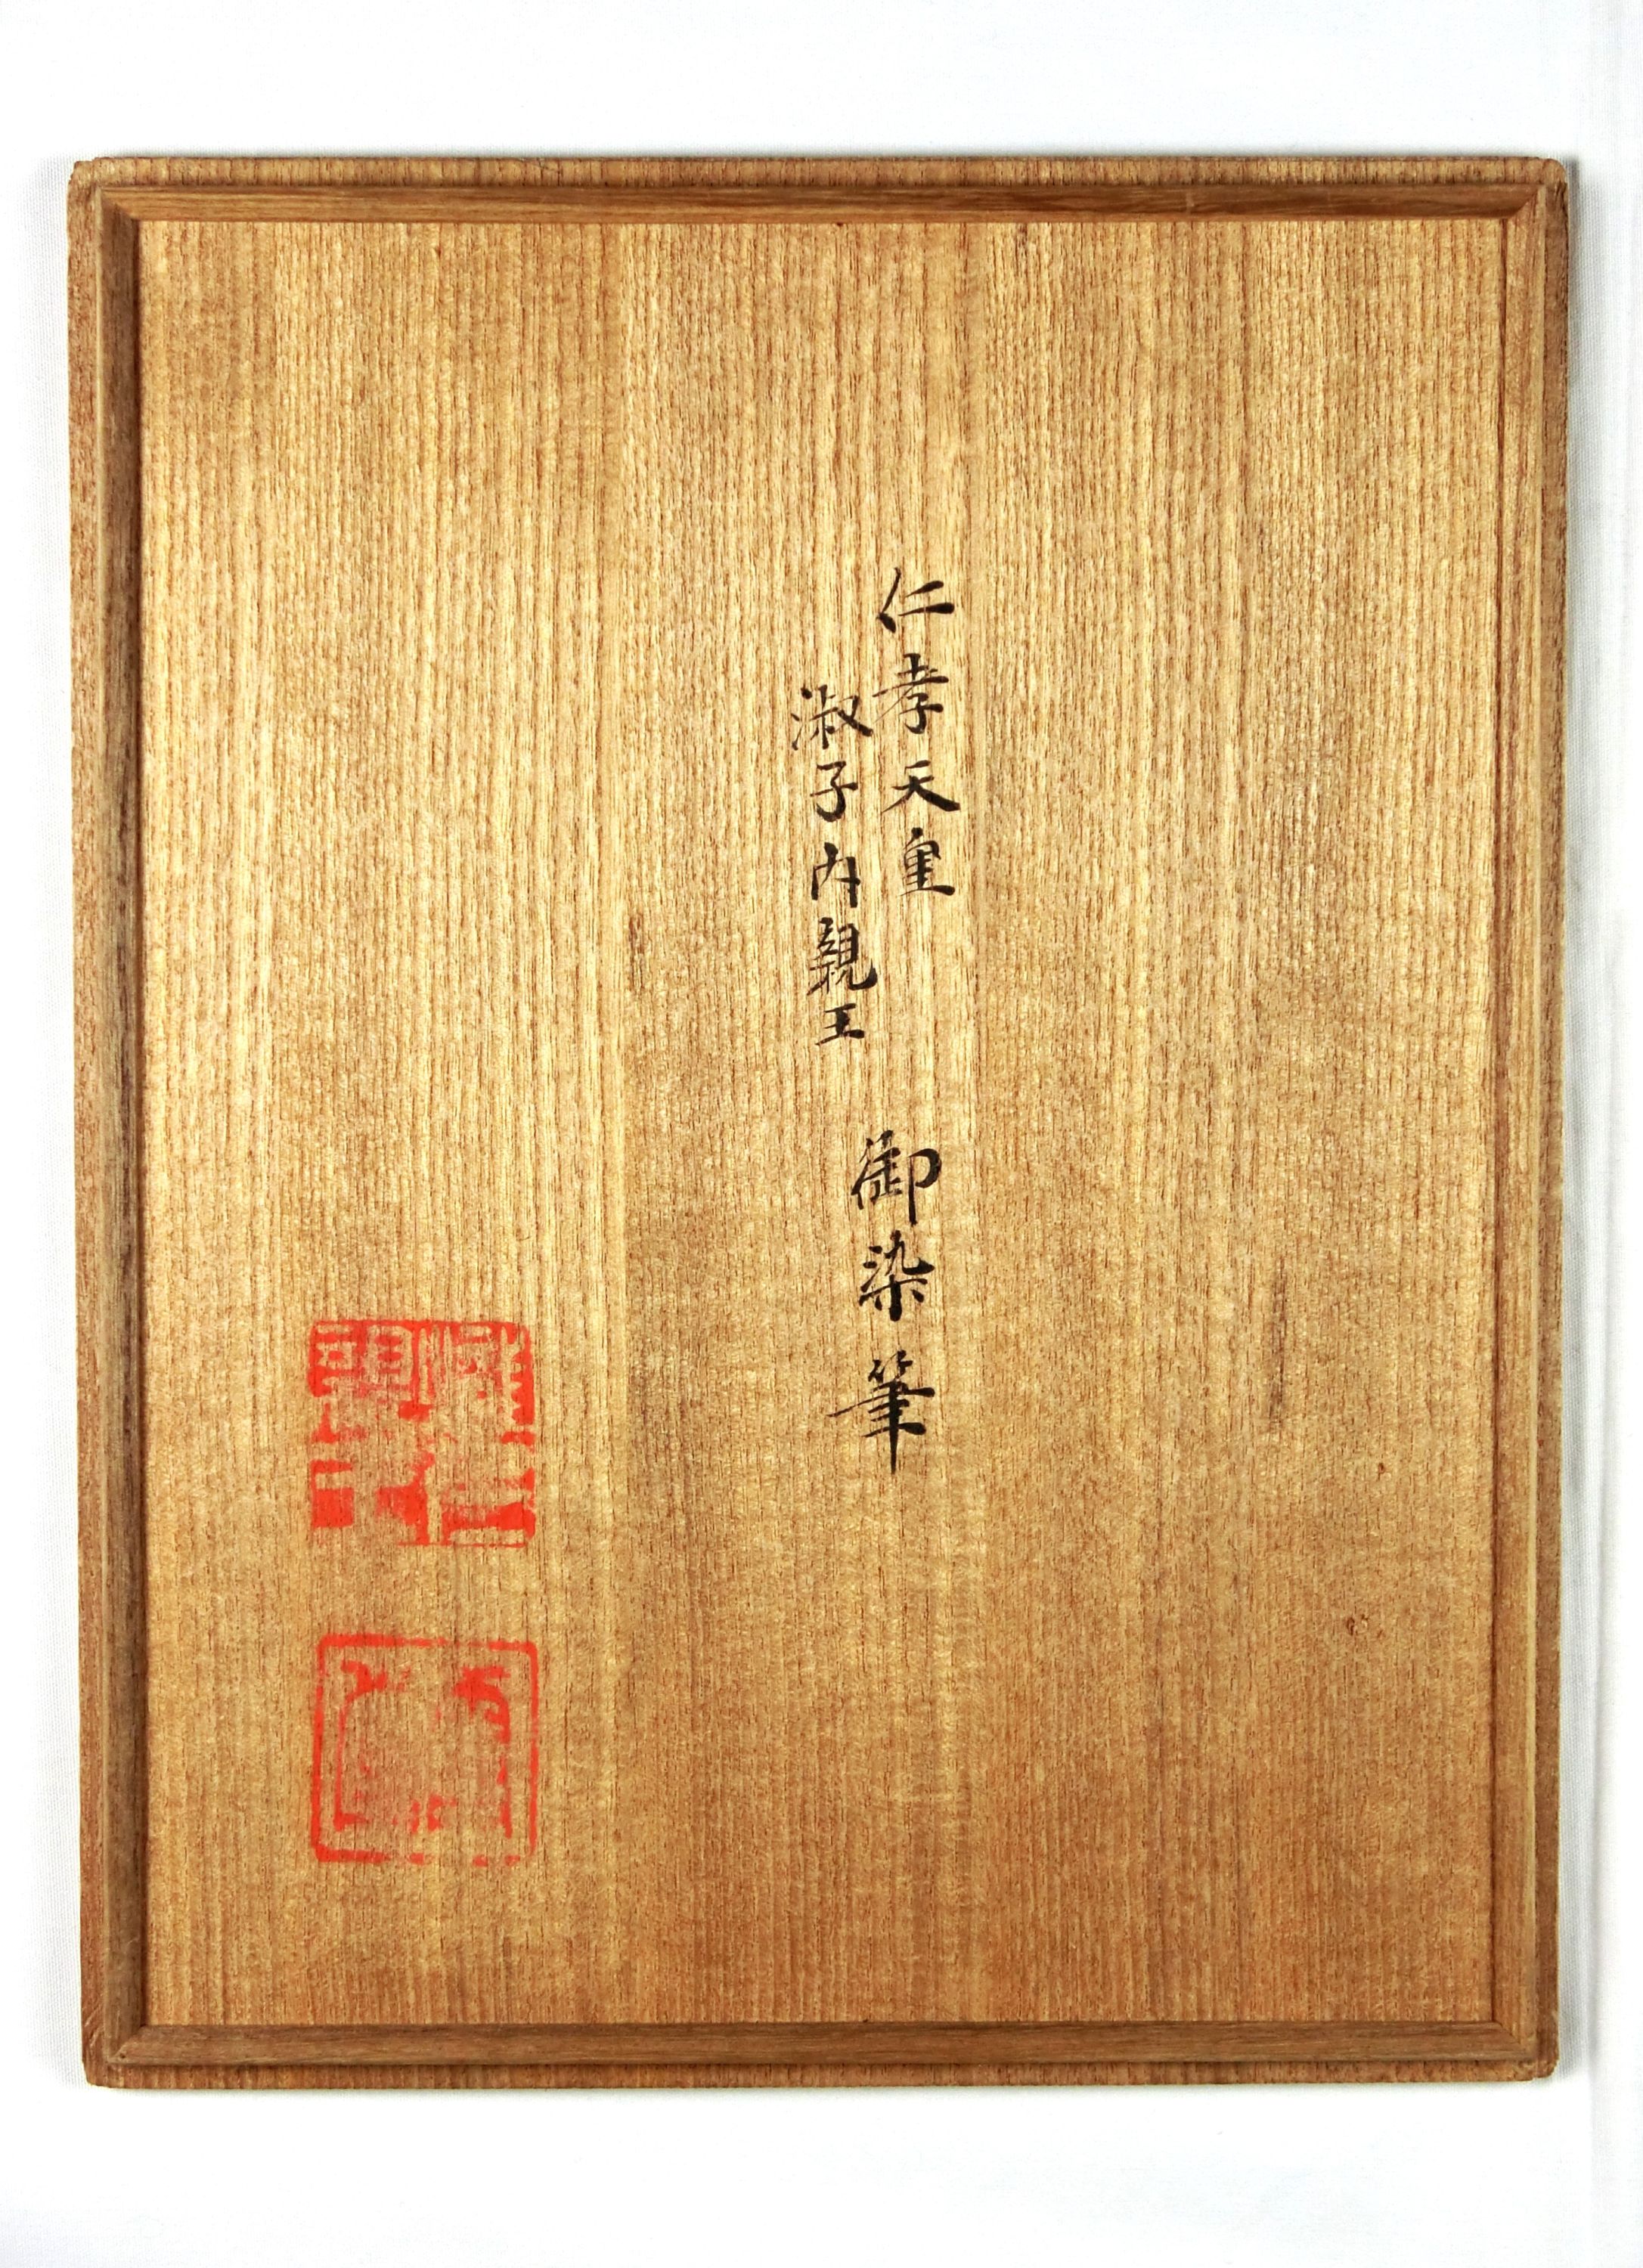 仁孝天皇
淑子内親王
御染筆